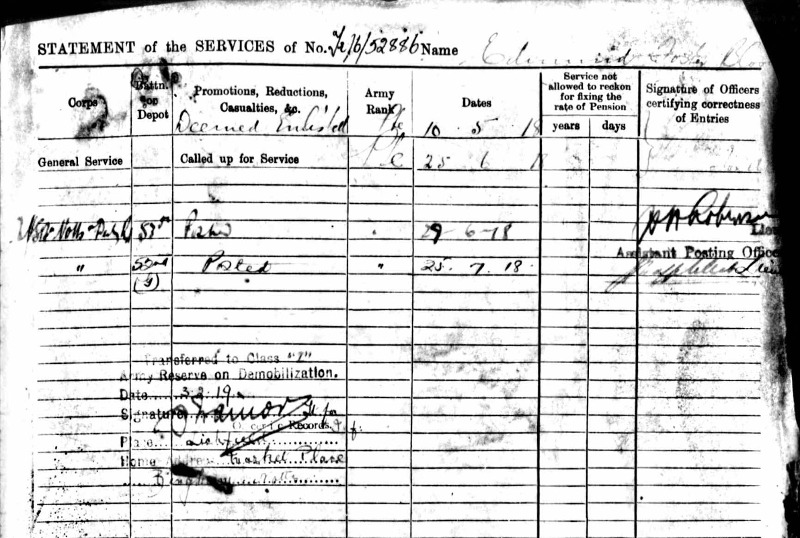 STATEMENT of the SERVICES of No. 52886 Name Edmund
Corps
Battn. or Depot
Promotions, Reductions, Casualties, &c.
Army Rank
Dates
Service not allowed to reckon for fixing the rate of Pension
years days
Signature of Officers certifying correctness of Entries
Deemed Enlisted Pte 10 . 5 . 18
General Service Called up for Service 25 6
Notts 53rd Posted " 29-6-18
Lieu
Assistant Posting Office
" 53rd Posted " 25. 7. 18.
Transferred to Class "Z"
Army Reserve on Demobilization.
Date 3.2.19
Signature
Records
Place Lichfield
Home Address Place
Notts